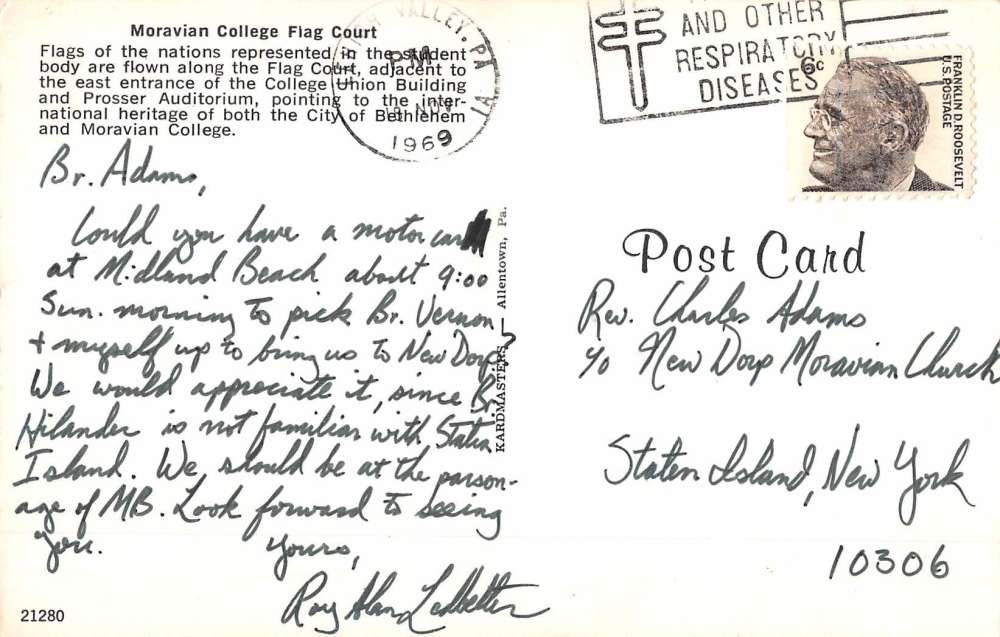 Moravian College Flag Court
Flags of the nations represented in the student
body are flown along the Flag Court, adjacent to
the east entrance of the College Union Building
and Prosser Auditorium, pointing to the inter-
national heritage of both the City of Bethlehem
and Moravian College.
VALLEY, PA
PM
NOV
1969
AND OTHER
RESPIRATORY
DISEASES
6c
FRANKLIN D. ROOSEVELT
U.S. POSTAGE
Br. Adams,
Could you have a motor car
at Midland Beach about 9:00
Sun. morning to pick Br. Vernon
+ myself up to bring us to New Dorp?
We would appreciate it, since Br.
Hilander is not familiar with Staten
Island. We should be at the parson-
age of MB. Look forward to seeing
you.
Yours,
Ray Alan Ledbetter
21280
KARDMASTERS, Allentown, Pa.
Post Card
Rev. Charles Adams
c/o New Dorp Moravian Church
Staten Island, New York
10306